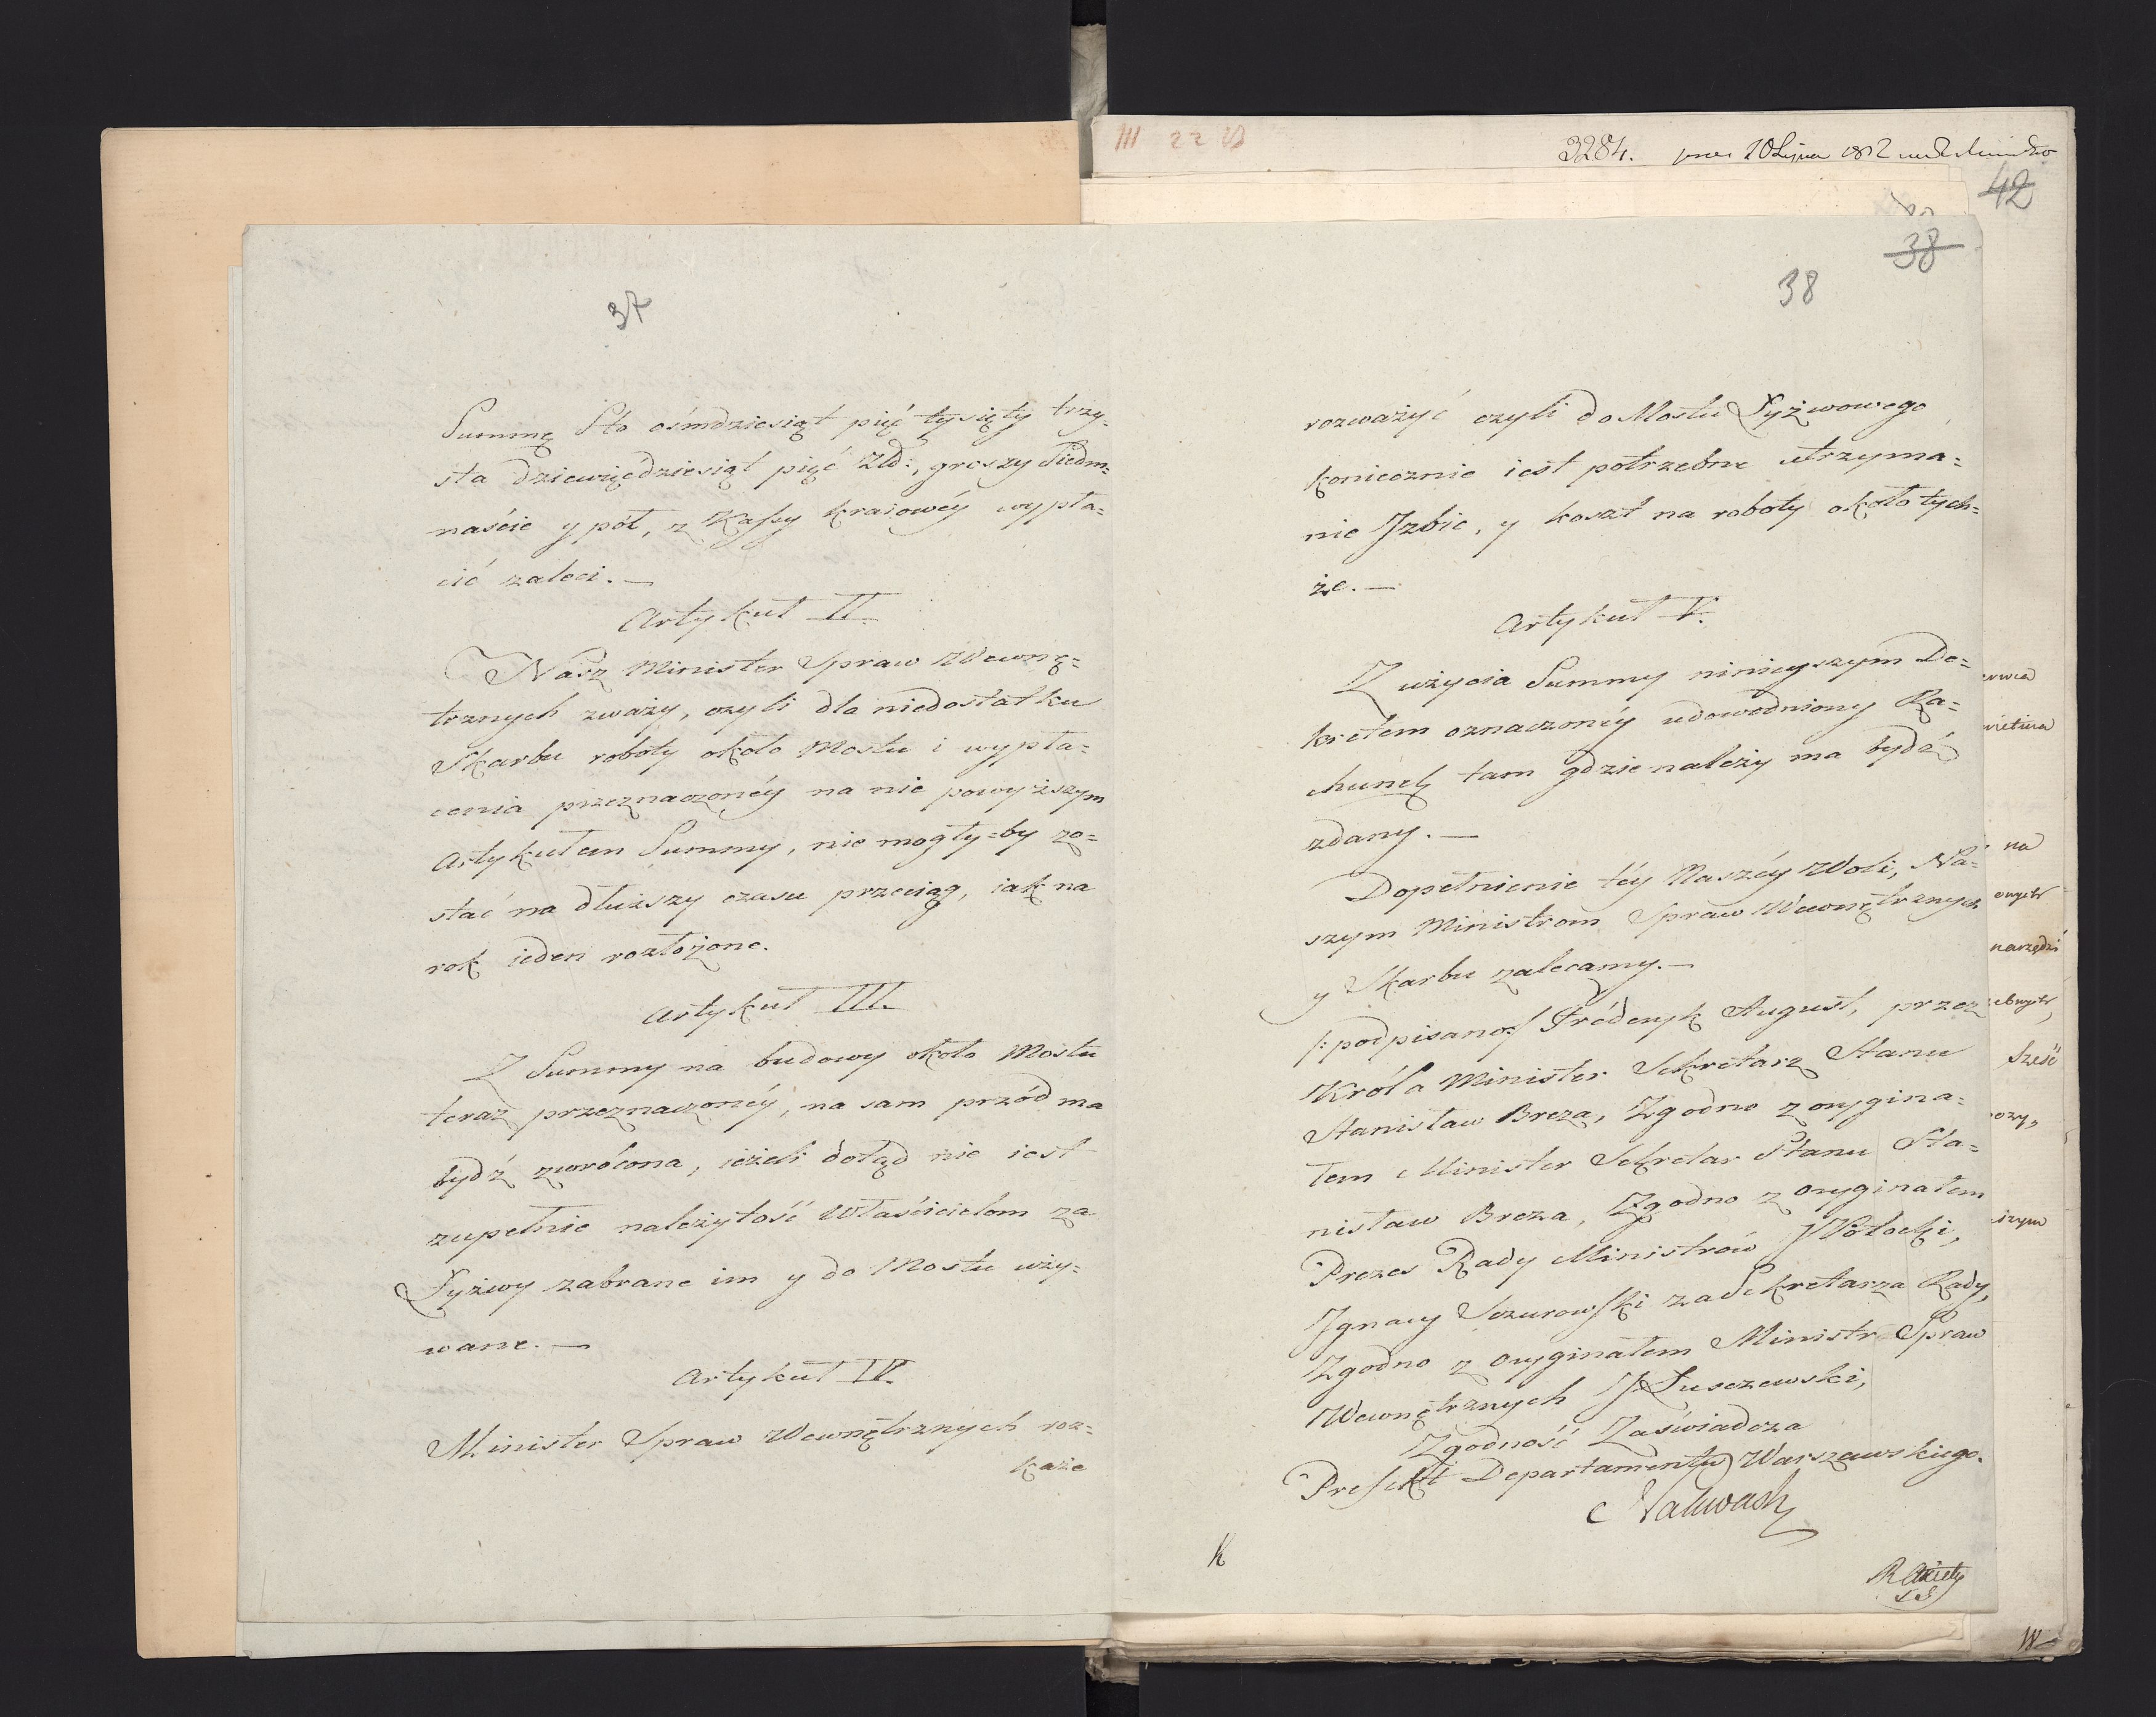 37
Summę Sto ośmdziesiąt pięć tysięty trzy-
sta dziewięćdziesiąt pięć Złł:, groszy Siedm=
naście y pół, z Kassy kraiowéy wypła=
cić zaleci. —
Artykuł II.
Nasz Minister Spraw Wewnę=
trznych zważy, czyli dla niedostatku
Skarbu roboty około Mostu i wypła=
cenia przeznaczonéy na nie powyższym
Artykułem Summy, nie mogły=by zo=
stać na dłuższy czasu przeciąg, iak na
rok ieden rozłożone.
Artykuł III.
Z Summy na budowy około Mostu
teraz przeznaczonéy, na sam przód ma
bydź zwrócona, ieżeli dotąd nie iest
zupełnie należytość Właścicielom za
Łyżwy zabrane im y do Mostu uży=
wane. —
Artykuł IV.
Minister Spraw Wewnętrznych roz=
każe
III 22 B
3284.
42
38
38
rozważyć czyli do Mostu Łyżwowego
koniecznie iest potrzebne utrzyma=
nie Jzbic, y koszt na roboty około tych=
że. —
Artykuł V.
Z użycia Summy ninieyszym De=
kretem oznaczonéy udowodniony Ra=
chunek tam gdzie należy ma bydź
zdany. —
Dopełnienie téy Naszéy Woli, Na=
szym Ministrom Spraw Wewnętrznych
y Skarbu zalecamy. —
/: podpisano:/ Fréderyk August, przez
Króla Minister Sekretarz Stanu
Stanisław Breza, Zgodno z orygina=
łem Minister Sekretar Stanu Sta=
nisław Breza, Zgodno z oryginałem
Prezes Rady Ministrów J Potocki,
Jgnacy Sozurowski za Sekretarza Rady,
Zgodno z oryginałem Ministr Spraw
Wewnętrznych J Łuszczewski,
Zgodność Zaświadcza
Prefekt Departamentu Warszawskiego.
Nakwaski
K
na
narzędzi
Sześć